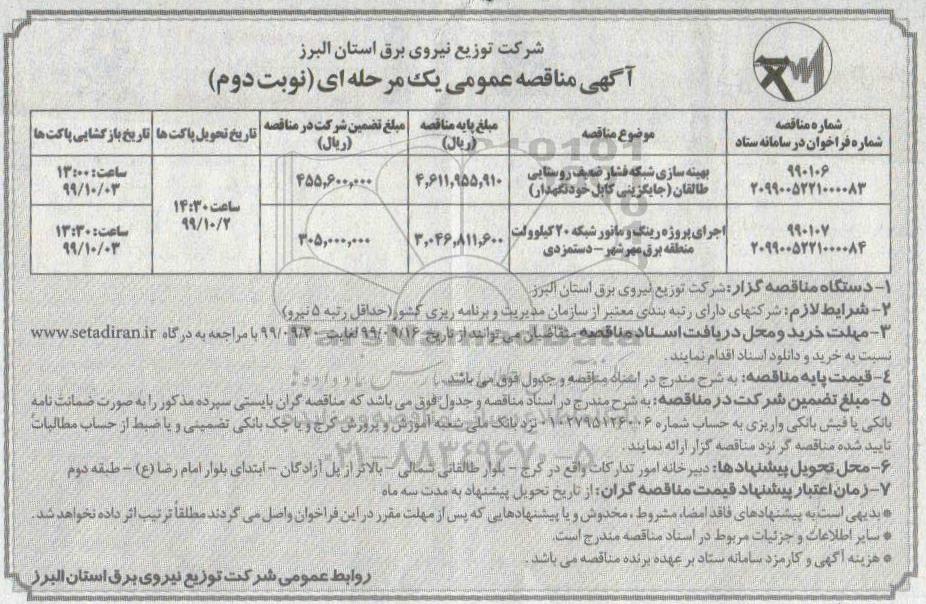 شرکت توزیع نیروی برق استان البرز
آگهی مناقصه عمومی یک مرحله ای (نوبت دوم)
شماره مناقصه
شماره فراخوان در سامانه ستاد
موضوع مناقصه
مبلغ پایه مناقصه
(ریال)
مبلغ تضمین شرکت در مناقصه
(ریال)
تاریخ تحویل پاکت ها
تاریخ بازگشایی پاکت ها
۹۹۰۱۰۶
۲۰۹۹۰۰۵۲۲۱۰۰۰۰۸۳
بهینه سازی شبکه فشار ضعیف روستایی
طالقان (جایگزینی کابل خودنگهدار)
۴,۶۱۱,۹۵۵,۹۱۰
۴۵۵,۶۰۰,۰۰۰
ساعت ۱۴:۳۰
۹۹/۱۰/۲
ساعت: ۱۳:۰۰
۹۹/۱۰/۰۳
۹۹۰۱۰۷
۲۰۹۹۰۰۵۲۲۱۰۰۰۰۸۴
اجرای پروژه رینگ و مانور شبکه ۲۰ کیلوولت
منطقه برق مهرشهر – دستمزدی
۳,۰۴۶,۸۱۱,۶۰۰
۳۰۵,۰۰۰,۰۰۰
ساعت: ۱۳:۳۰
۹۹/۱۰/۰۳
۱- دستگاه مناقصه گزار: شرکت توزیع نیروی برق استان البرز.
۲- شرایط لازم: شرکتهای دارای رتبه بندی معتبر از سازمان مدیریت و برنامه ریزی کشور (حداقل رتبه ۵ نیرو)
۳- مهلت خرید و محل دریافت اسناد مناقصه: متقاضیان می توانند از تاریخ ۹۹/۰۹/۱۶ لغایت ۹۹/۰۹/۲۰ با مراجعه به درگاه www.setadiran.ir
نسبت به خرید و دانلود اسناد اقدام نمایند.
۴- قیمت پایه مناقصه: به شرح مندرج در اسناد مناقصه و جدول فوق می باشد.
۵- مبلغ تضمین شرکت در مناقصه: به شرح مندرج در اسناد مناقصه و جدول فوق می باشد که مناقصه گران بایستی سپرده مذکور را به صورت ضمانت نامه
بانکی یا فیش بانکی واریزی به حساب شماره ۰۱۰۲۷۹۵۱۲۶۰۰۶ نزد بانک ملی شعبه آموزش و پرورش کرج و یا چک بانکی تضمینی و یا ضبط از حساب مطالبات
تایید شده مناقصه گر نزد مناقصه گزار ارائه نمایند.
۶- محل تحویل پیشنهادها: دبیرخانه امور تدارکات واقع در کرج – بلوار طالقانی شمالی – بالاتر از پل آزادگان – ابتدای بلوار امام رضا (ع) – طبقه دوم
۷- زمان اعتبار پیشنهاد قیمت مناقصه گران: از تاریخ تحویل پیشنهاد به مدت سه ماه
* بدیهی است به پیشنهادهای فاقد امضاء، مشروط، مخدوش و یا پیشنهادهایی که پس از مهلت مقرر در این فراخوان واصل می گردند مطلقاً ترتیب اثر داده نخواهد شد.
* سایر اطلاعات و جزئیات مربوط در اسناد مناقصه مندرج است.
* هزینه آگهی و کارمزد سامانه ستاد بر عهده برنده مناقصه می باشد.
روابط عمومی شرکت توزیع نیروی برق استان البرز
ParsNamadData
۰۲۱-۸۸۳۴۹۶۷۰-۵